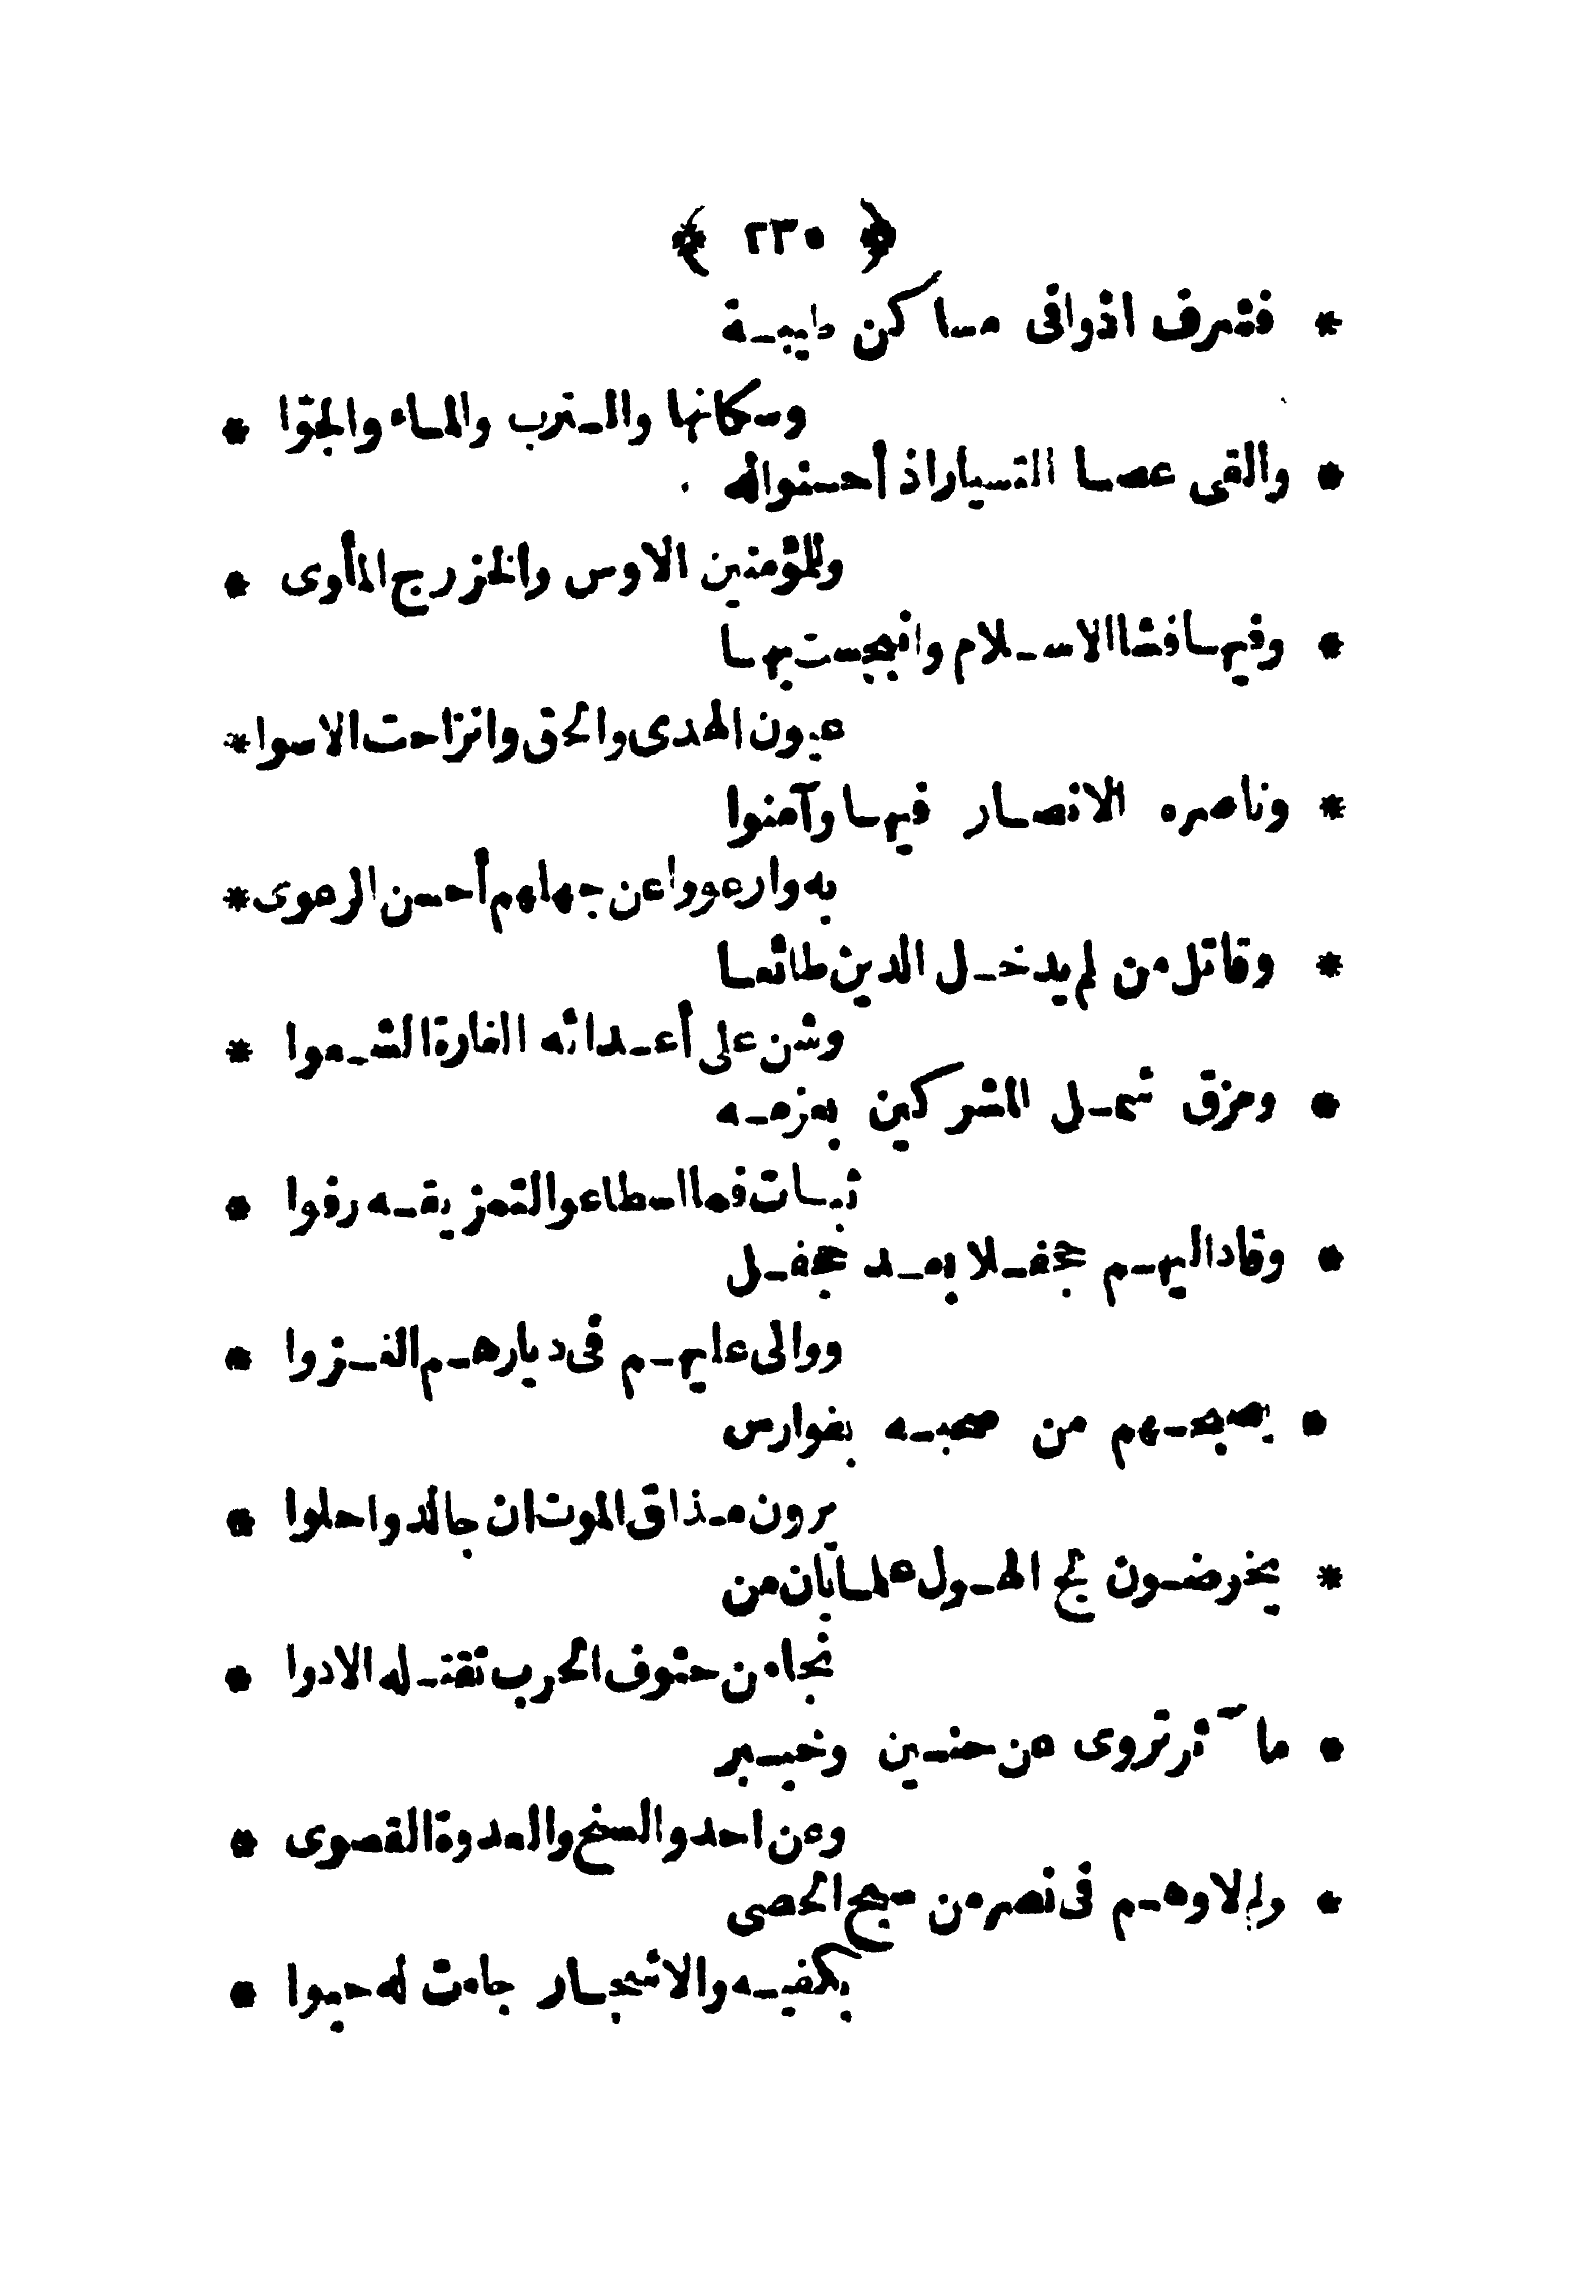 ﴿ ٢٣٥ ﴾
* فشرف اذ وافى مساكن طيبـة
وسكانها والـترب والمـاء والجوّا *
* والقى عصـا التسيار اذ أحـسنوا له
وللمؤمنين الاوس والخزرج المأوى *
* وفيهـا فشا الاسـلام وانبجست بهـا
عيون الهدى والحق وانزاحت الاسوا *
* وناصره الانصـار فيهـا وآمنوا
به وارعووا عن جهلهم أحسن الرعوى *
* وقاتل من لم يدخـل الدين طائعـا
وشن على أعـدائه الغارة الشـعوا *
* ومزق شمـل المشركين بعزمـه
ثبـات فما اسطاعوا لتمزيقـه رفوا *
* وقاد اليهـم جحفـلا بعـد جحفـل
ووالى عليهـم فى ديارهـم الغـزوا *
* يصبحـهم من صحبـه بفوارس
يرون مـذاق الموت ان جالدوا حلوا *
* يخوضـون لج الهـول علمـا بأن من
نجا من حتوف الحرب تقتـله الادوا *
* مآثر تروى عن حنـين وخيـبر
وعن احد والسفح والعدوة القصوى *
* ولم لا وهـم فى نصر من سبح الحصى
بكفيـه والاشجـار جاءت له حبوا *